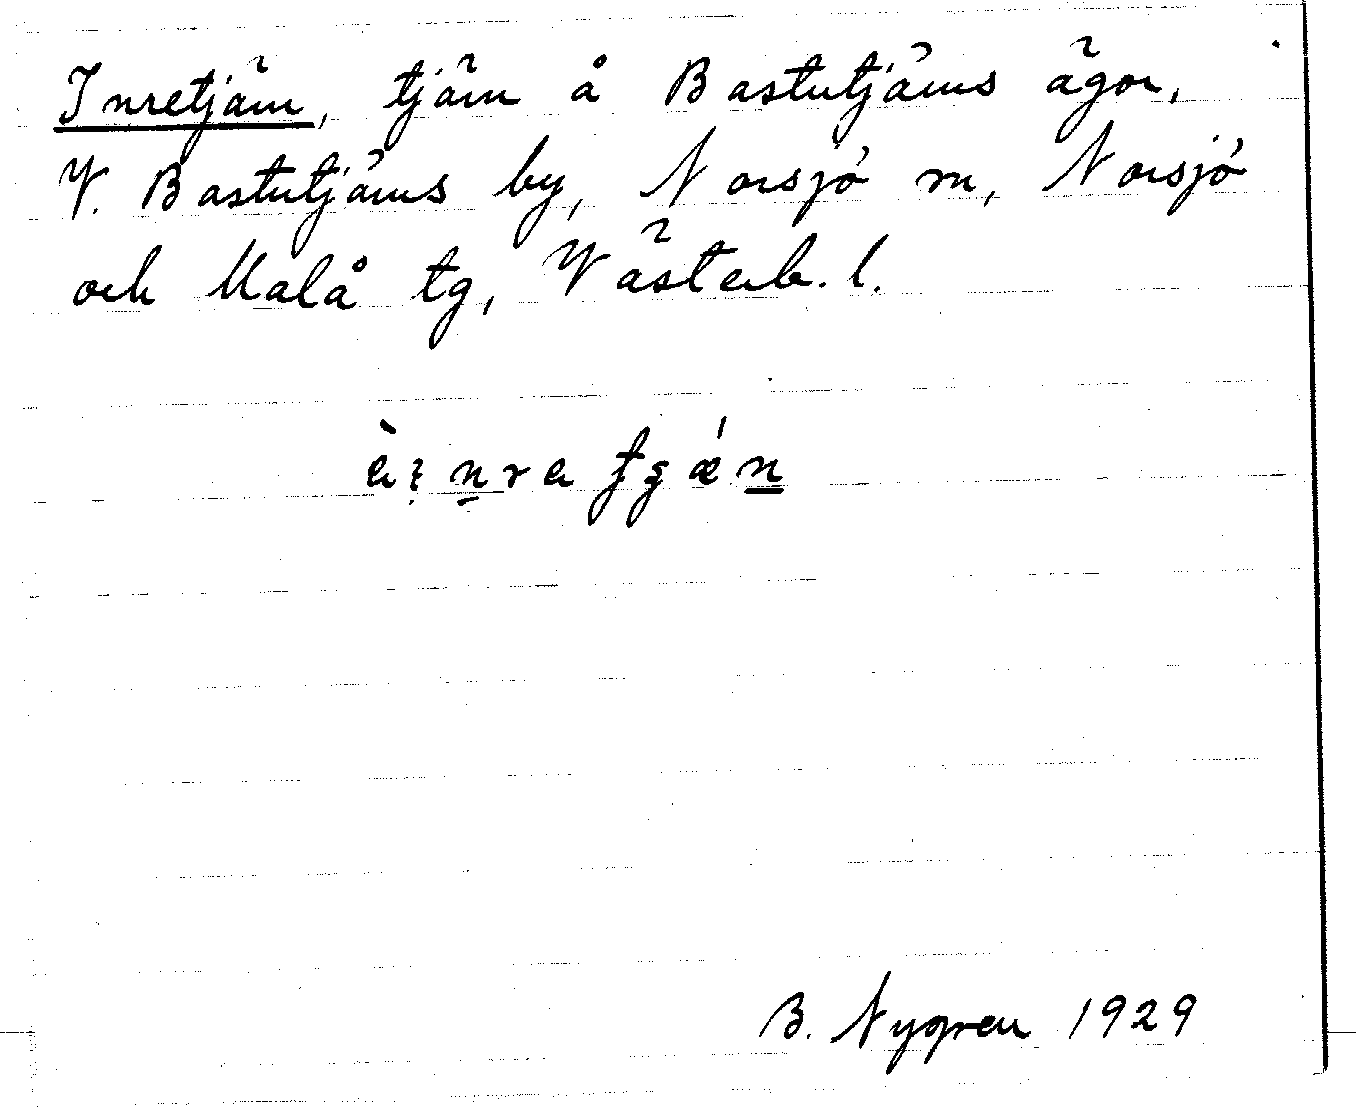 Inretjärn, tjärn å Bastutjärns ägor,
V. Bastutjärns by, Norsjö sn, Norsjö
och Malå tg, Västerb. l.
B. Nygren 1929